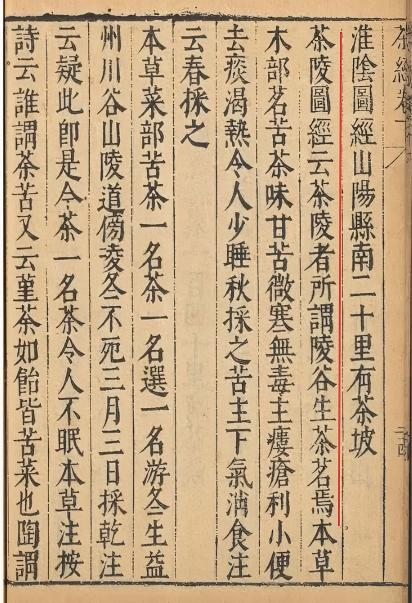 淮陰圖經山陽縣南二十里有茶坡
茶陵圖經云茶陵者所謂陵谷生茶茗焉本草
木部茗苦茶味甘苦微寒無毒主瘻瘡利小便
去痰渴熱令人少睡秋採之苦主下氣消食注
云春採之
本草菜部苦茶一名茶一名選一名游冬生益
州川谷山陵道傍凌冬不死三月三日採乾注
云疑此即是今茶一名茶令人不眠本草注按
詩云誰謂茶苦又云堇茶如飴皆苦菜也陶謂